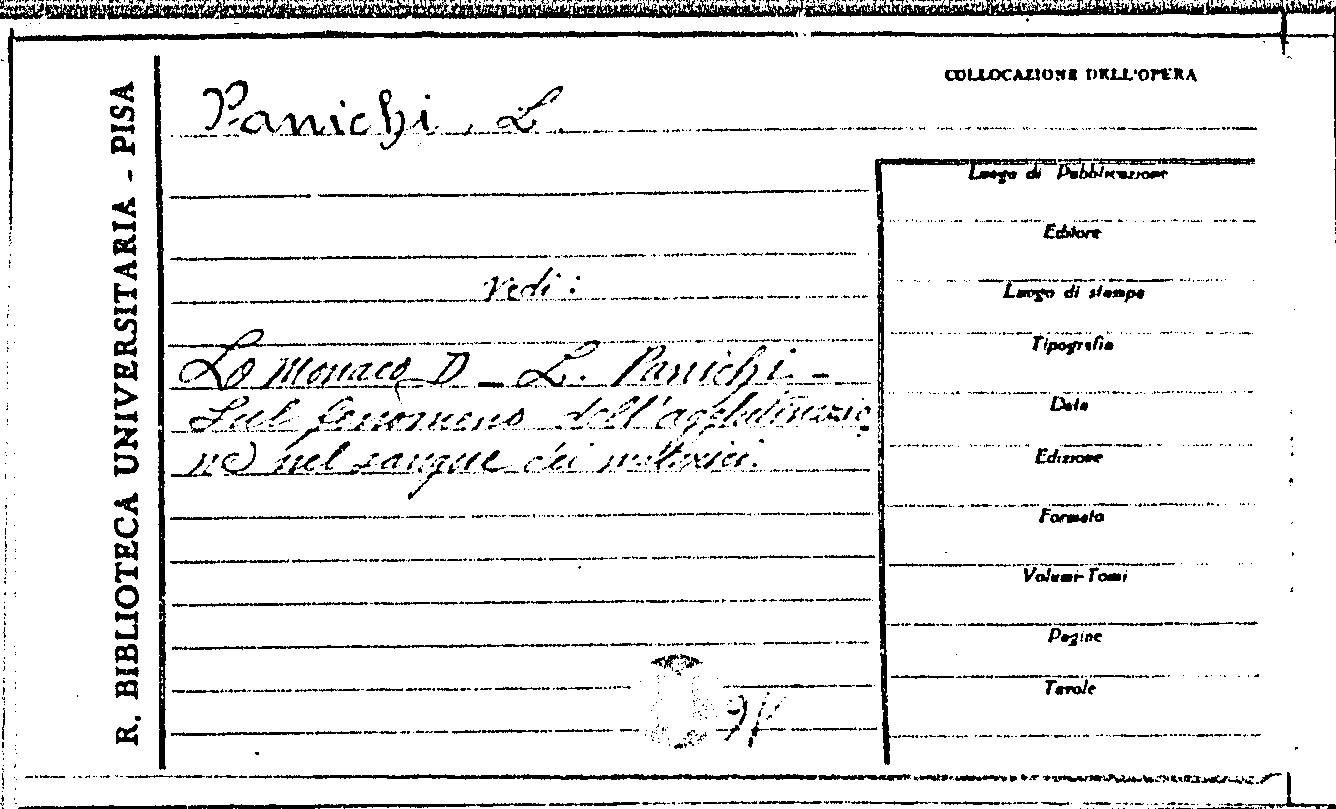 R. BIBLIOTECA UNIVERSITARIA - PISA
COLLOCAZIONE DELL'OPERA
Panichi, L.
Luogo di Pubblicazione
Editore
Vedi:
Luogo di stampa
Tipografia
Lo Monaco D - L. Panichi -
Sul fenomeno dell'agglutinazio
ne nel sangue dei malarici.
Data
Edizione
Formato
Volumi-Tomi
Pagine
Tavole